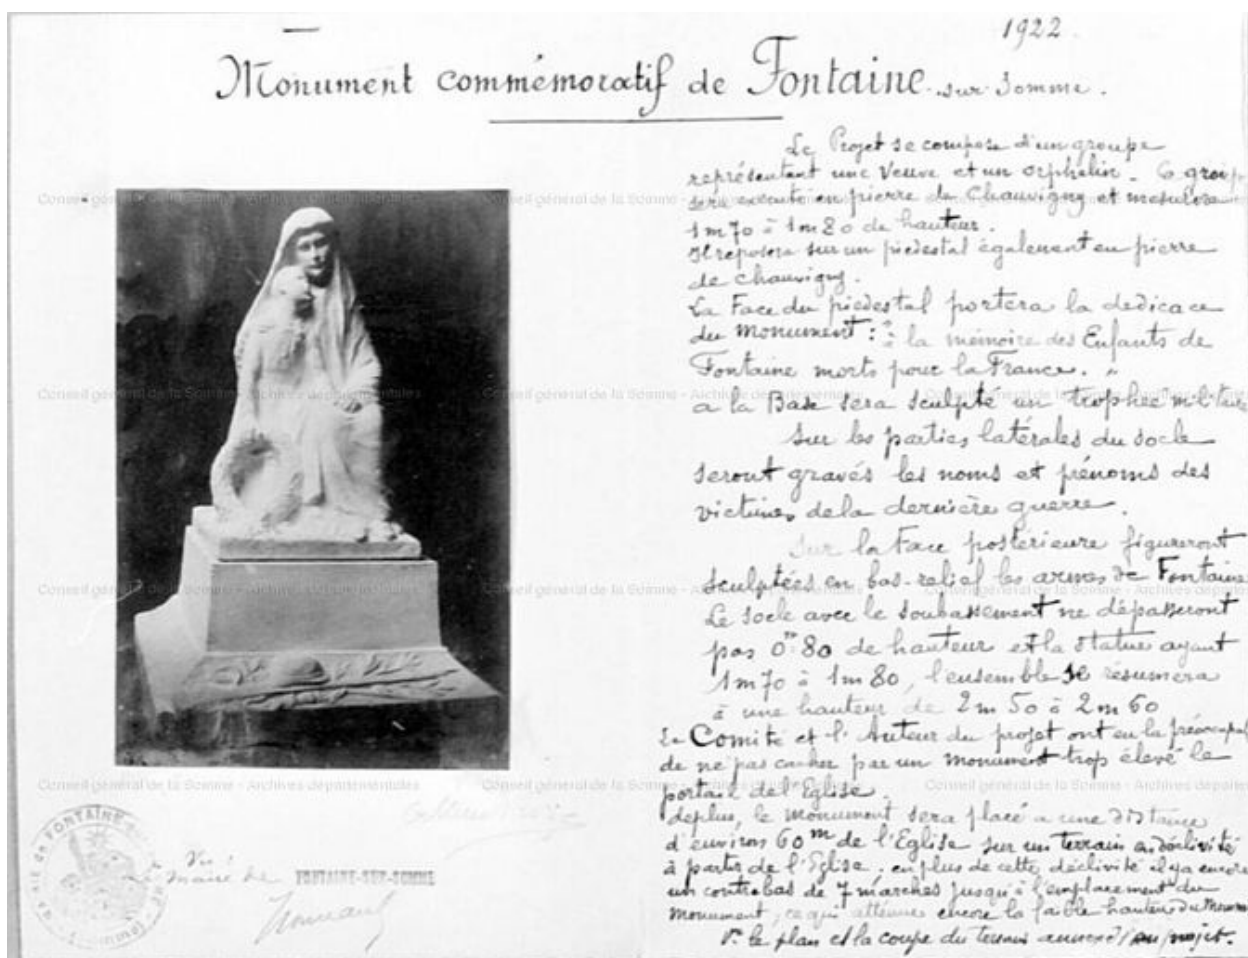 1922.
Monument commémoratif de Fontaine-sur-Somme.
Le Projet se compose d'un groupe
représentant une Veuve et un orphelin. Ce groupe
sera executé en pierre de Chauvigny et mesurera
1m70 à 1m80 de hauteur.
Il reposera sur un piedestal également en pierre
de Chauvigny.
La Face du piedestal portera la dedicace
du Monument : "à la mémoire des Enfants de
Fontaine morts pour la France. "
a la Base sera sculpté un trophée militaire
Sur les parties latérales du socle
seront gravés les noms et prénoms des
victimes de la dernière guerre.
Sur la Face posterieure figureront
sculptées en bas-relief les armes de Fontaine
Le socle avec le soubassement ne dépasseront
pas 0m80 de hauteur et la statue ayant
1m70 à 1m80, l'ensemble se résumera
à une hauteur de 2m50 à 2m60
Le Comité et l'Auteur du projet ont eu la
de ne pas cacher par un monument trop élevé le
portail de l'Eglise.
deplus, le monument sera placé a une distance
d'environ 60m de l'Eglise sur un terrain en déclivité
à partir de l'Eglise. en plus de cette déclivité il ya encore
un contrebas de 7 marches jusqu'à l'emplacement du
Monument, ce qui atténue encore la faible hauteur du
Vr le plan et la coupe du terrain annexés au projet.
Vu
Le Maire de FONTAINE-SUR-SOMME
Conseil général de la Somme - Archives départementales